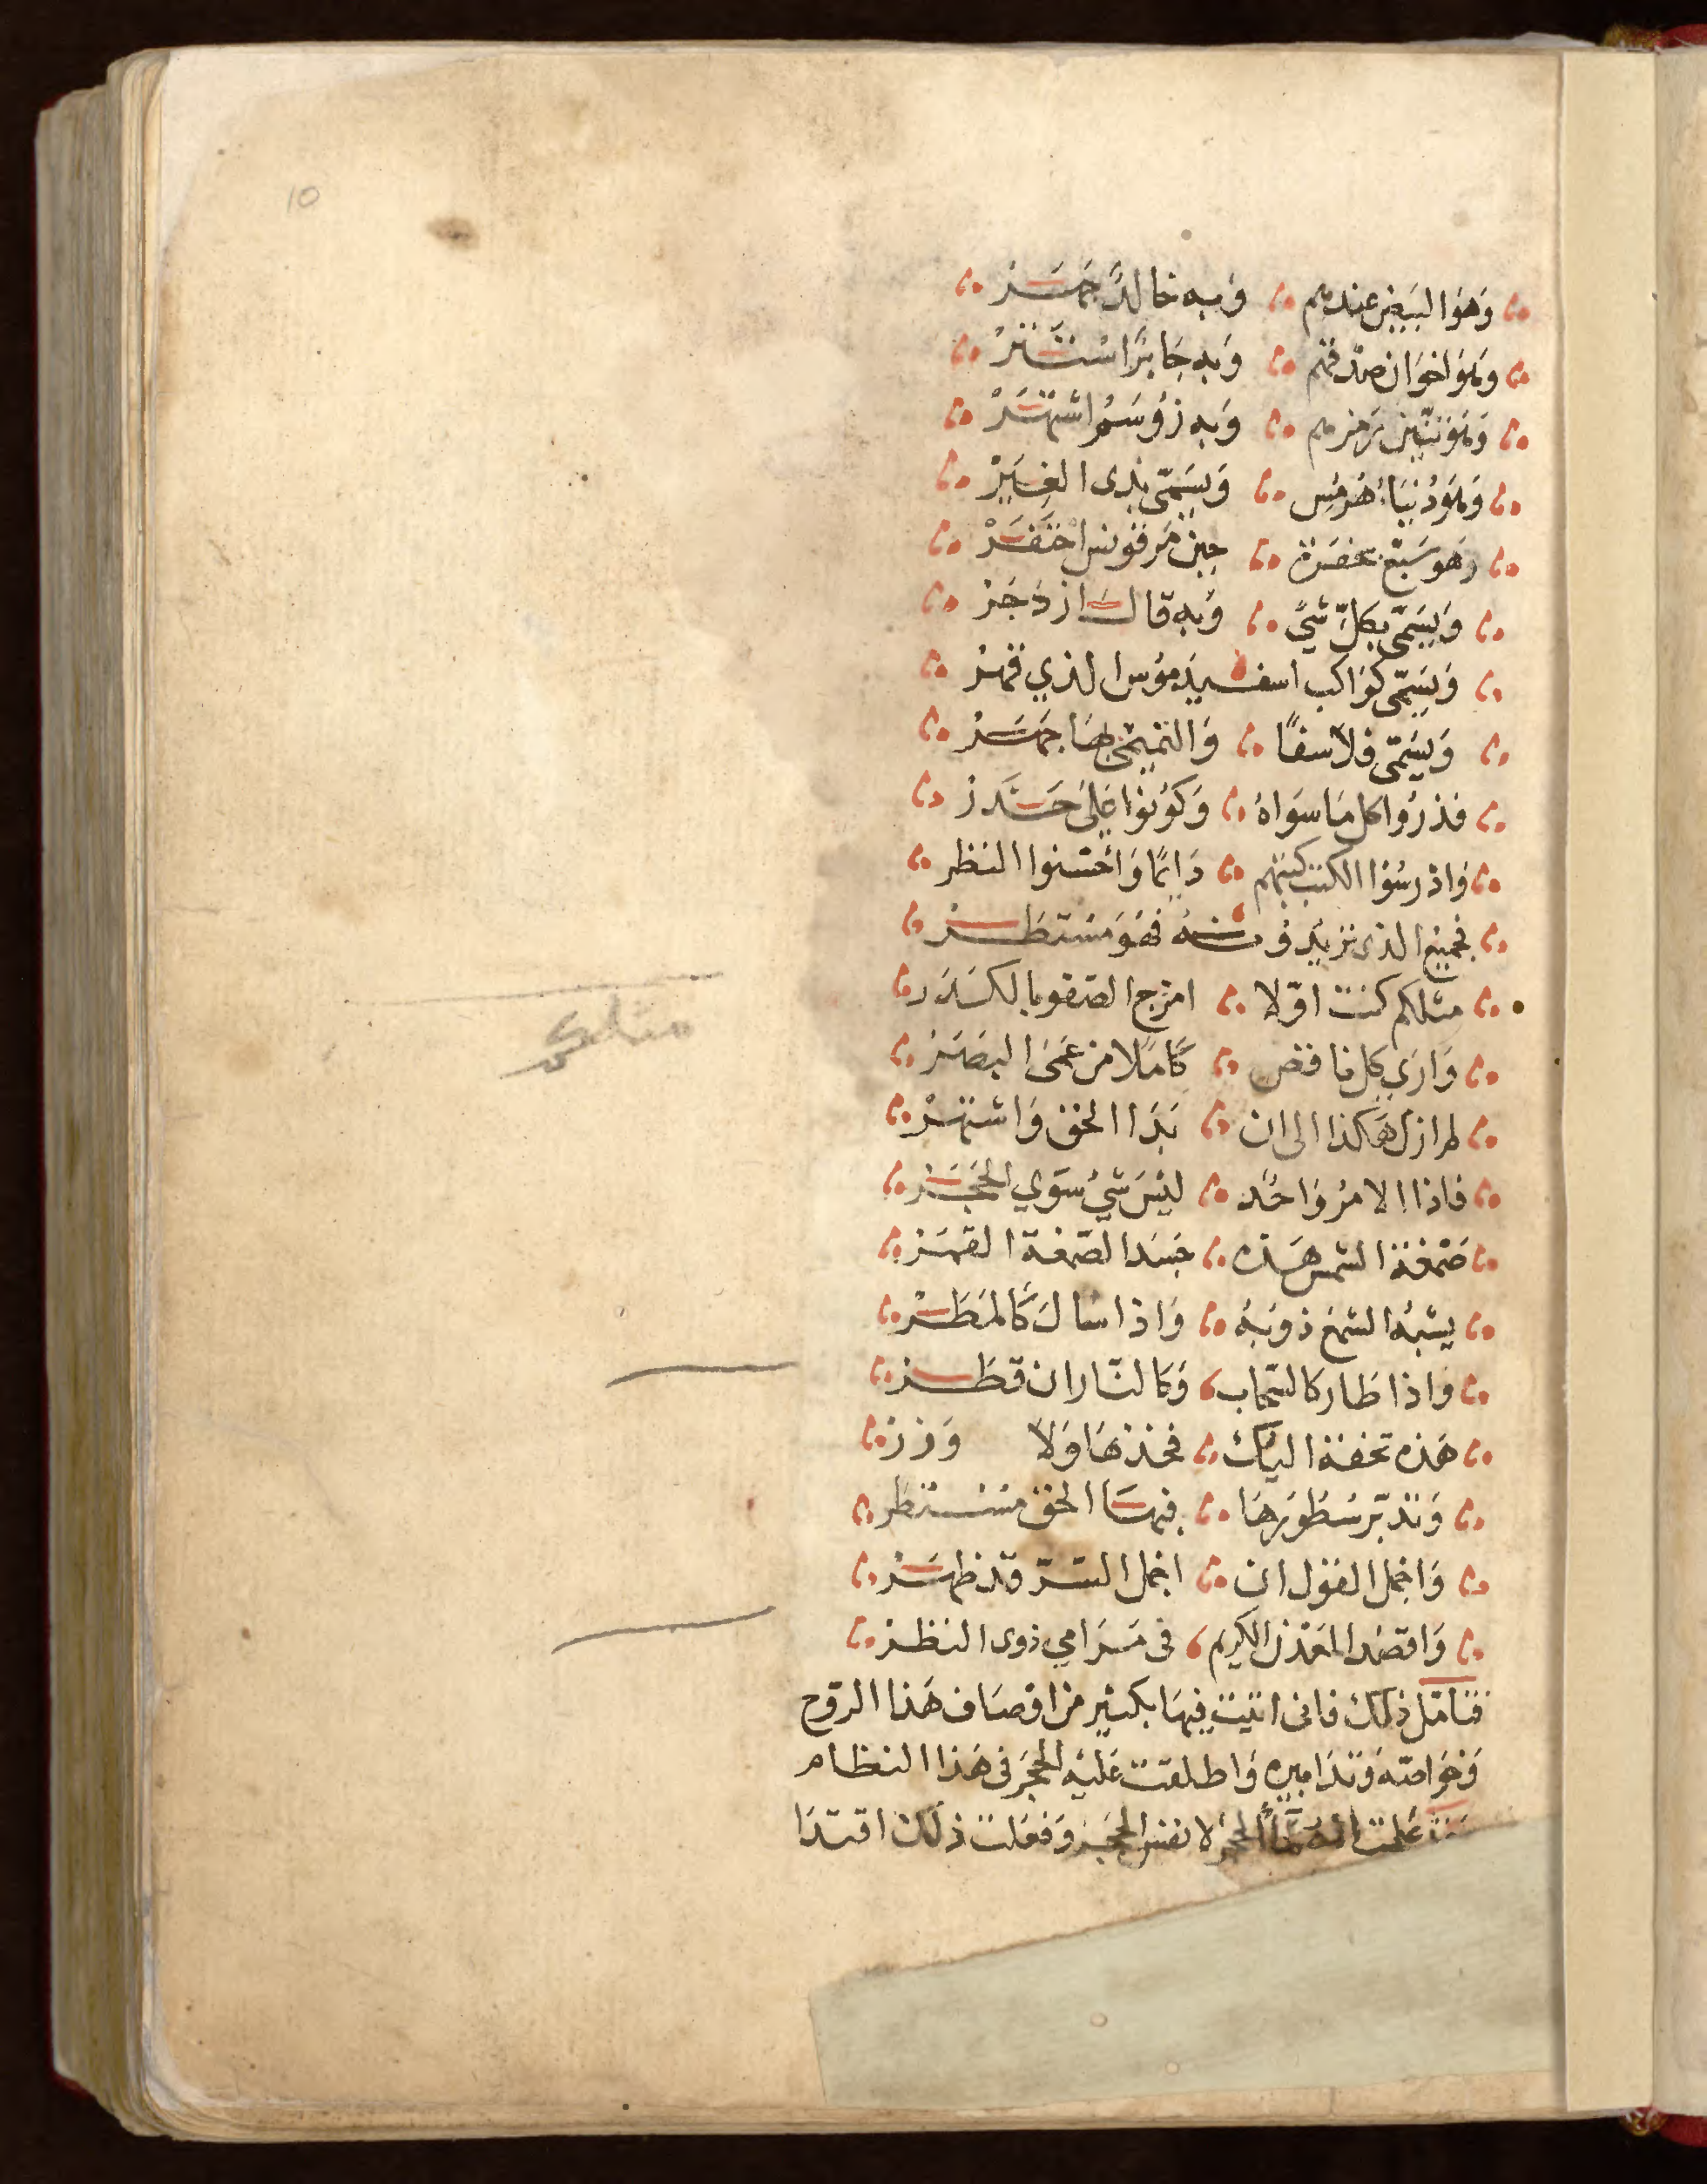 10
وَهوَ اليَقين عندهم وَبه خالدًا جَهَر
وَهوَ اخوَان صدقهم وَبه جَابرًا استتر
وَهوَ تنّين رَمزهم وَبه زوسَم اشتهَر
وَهوَ دُنيَا هُرمُس وَيسَمّى بذى الغِيَر
وَهوَ سَبْع حِين مَرقونس
وَيسَمّى بكل شي وَبه قالَ ازدَجَر
وَيسَمّى كوَاكب اسفيدَموُس الذي قمر
وَيسَمّى فلاسفًا وَالتميمى بهَا جَهَر
فذرُوا كل مَا سوَاهُ وَكوُنوُا عَلى حَذر
وَادرسُوا الكتب كتبهم دَايمًا وَاحسنوا النظر
فجَميع الذى تريدُون منه فهُوَ مستطَر
مثلكم كنت اوّلا امزج الصّفو بالكدَر
وَارَي كل ناقص كَامَلا من عَمَى البصَر
لم ازل هَكذا الى ان بَدَا الحق وَاشتهر
فاذا الامرُ وَاحُد ليسَ شيُ سوَي الحَجَر
صَمغة الشمس هَذه جَسَد الصّمغة القمَر
يشبهُ الشمعَ ذوبَهُ وَاذا سَالَ كَالمَطَر
وَاذا طَار كالسّحاب وَكالنّار ان قطَر
هَذه تحفة اليك فخذهَا وَلا وَزر
وَتدبّر سُطورهَا فيهَا الحق مستطر
وَاجمل القول ان اجمل السّرّ قد ظهَر
وَاقصُد المعَدن الكريم فى مَرَامي ذوى النظر
فتامّل ذلك فانى اتيت فيهَا بكثير من اوصَاف هَذا الروح
وَخوَاصّه وَتدَابيره وَاطلقت عَليه الحجَر فى هَذا النظام
عَلمت انهُ مَآءُ الحجر لا نفس الحجَر وَفعَلت ذلك اقتدَا
مثلكم